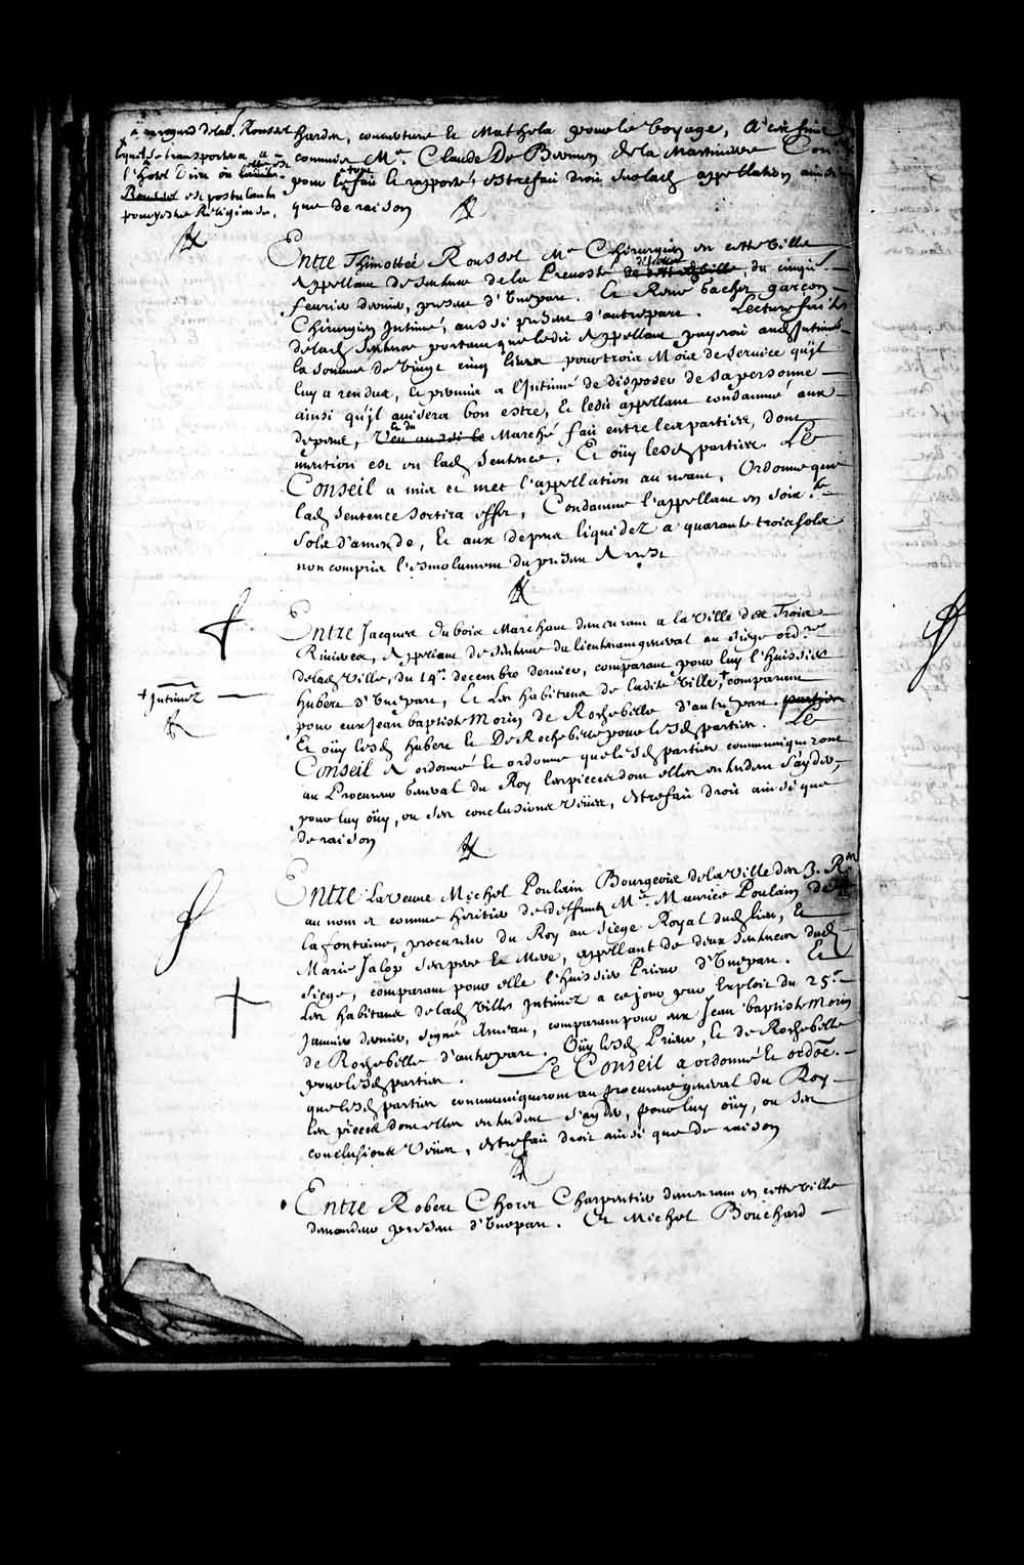 a l'egard de lad. Roussel
lequel se transportera a
l'hotel Dieu ou
est postulante
pour estre Religieuse.
hardes, couverture et Mathelas pour le voyage, A
commis Me. Claude De Bermen de la Martiniere Con
pour le fait et rapporté, estre fait droit sur lad. appellation ainsi
que de raison
Entre Thimottée Roussel Me Chirurgien en cette ville
Appellant de sentence de la Prevosté du cinqe.
fevrier dernier, present d'Unepart. Et René garçon
Chirurgien Intimé, aussi present d'autrepart. Lecture faite
de lad. Sentence portant que ledit Appellant payeroit aud. Intimé
la somme de Vingt cinq livres pour trois Mois de service qu'jl
luy a rendus, et permis a l'Jntimé de disposer de sa personne
ainsi qu'jl avisera bon estre, Et ledit appellant condamné aux
depens, Veu aussi le Marché fait entre les parties, dont
mention est en lad. Sentence. Et oüy lesd. parties. Le
Conseil a mis et met l'appellation au neant. Ordonne que
lad. Sentence sortira effet, Condamne l'appellant en soixte.
Sols d'amende, Et aux depens liquidez a quarante trois sols
non compris l'esmolument du present Arrest
Entre Jacques Dubois Marchant demeurant a la Ville des Trois
Rivieres, Appellant de Sentence du lieutenant general au siege ordre.
de lad. Ville, du 14e. decembre dernier, comparant pour luy l'huissier
Hubert d'Unepart, Et Les habitans de ladite Ville, + comparant
+ Jntimez
pour eux Jean baptiste Morin de Rochebelle d'autrepart. parties
Et oüy lesd. Hubert et De Rochebelle pour lesd. parties. Le
Conseil A ordonné Et ordonne que lesd. parties communiqueront
au Procureur General du Roy les pieces dont elles entendent s'ayder,
pour luy oüy, ou ses conclusions veües, estre fait droit ainsi que
de raison
Entre La Veuve Michel Poulain Bourgeois de la Ville des 3. Rres
au nom et comme heritiere de deffuntz Me. Maurice Poulain de
la fontaine, procureur du Roy au siege Royal dud. lieu, Et
Marie Jalop ses pere Et Mere, appellant de deux sentences dud.
siege, comparant pour elle l'huissier Prieur d'Unepart. Et
Les habitans de lad. Ville Intimez a ce jour par Exploit du 25e.
Janvier dernier, signé Ameau, comparant pour eux Jean baptiste Morin
de Rochebelle d'autrepart. Oüy lesd. Prieur, Et de Rochebelle
pour lesd. parties. Le Conseil a ordonné Et ordoe.
que lesd. parties communiqueront au procureur general du Roy
les pieces dont elles entendent s'ayder, pour luy oüy, ou ses
conclusions Veües, estre fait droit ainsi que de raison
Entre Robert Choret Charpentier demeurant en cette ville
demandeur present d'Unepart. Et Michel Bouchard